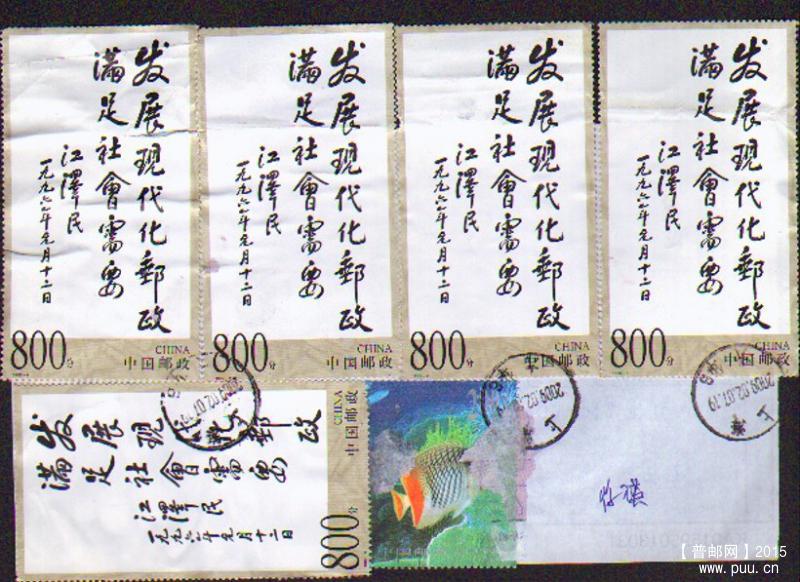 发展现代化郵政
满足社會需要
江澤民
一九九六年元月十二日
800分
CHINA
中国邮政
发展现代化郵政
满足社會需要
江澤民
一九九六年元月十二日
800分
CHINA
中国邮政
发展现代化郵政
满足社會需要
江澤民
一九九六年元月十二日
800分
CHINA
中国邮政
发展现代化郵政
满足社會需要
江澤民
一九九六年元月十二日
800分
CHINA
中国邮政
发展现代化郵政
满足社會需要
江澤民
一九九六年元月十二日
800分
CHINA
中国邮政
2009.02.01.19
2009.02
2009.02.01.19
中国邮政
【普邮网】2015
www.puu.cn